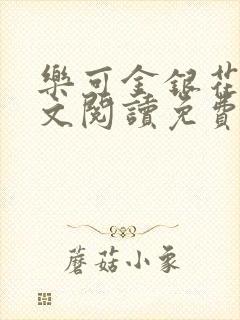 樂可金銀花
文閱讀免費
蘑菇小象